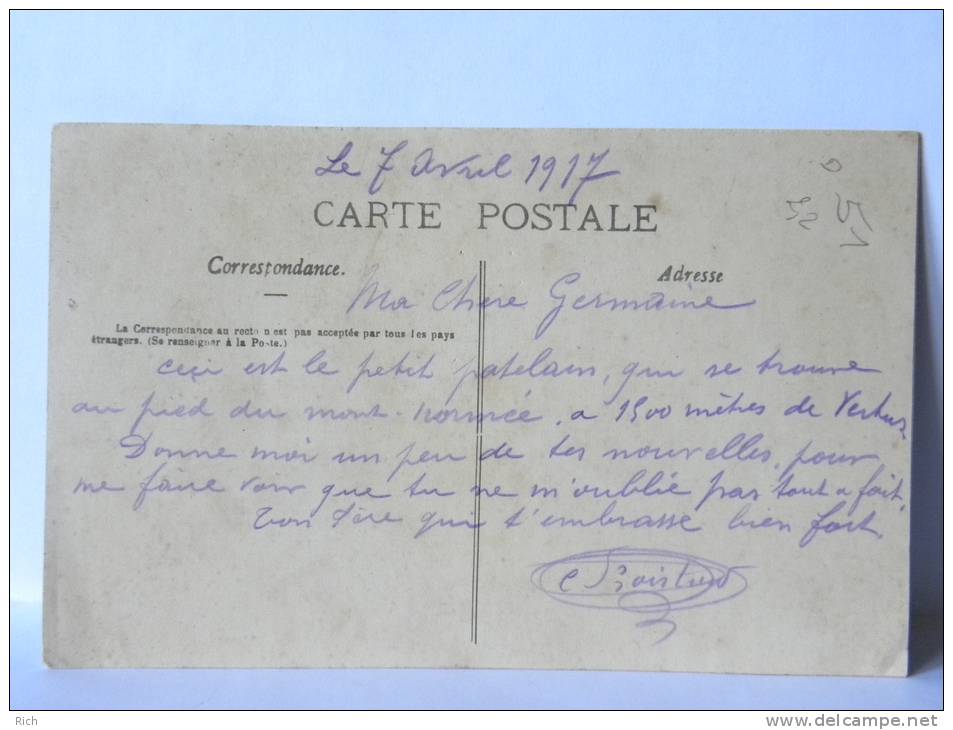 Le 7 Avril 1917
CARTE POSTALE
51
Correspondance.
Adresse
Ma Chere Germaine
La Correspondance au recto n'est pas acceptée par tous les pays
étrangers. (Se renseigner à la Poste.)
ceçi est le petit patelain, qui se trouve
au pied du mont, a 1500 mètres de Vertus
Donne moi un peu de tes nouvelles, pour
me faire voir que tu ne m'oublie pas tout a fait.
Ton Père qui t'embrasse bien fort.
Rich
www.delcampe.net